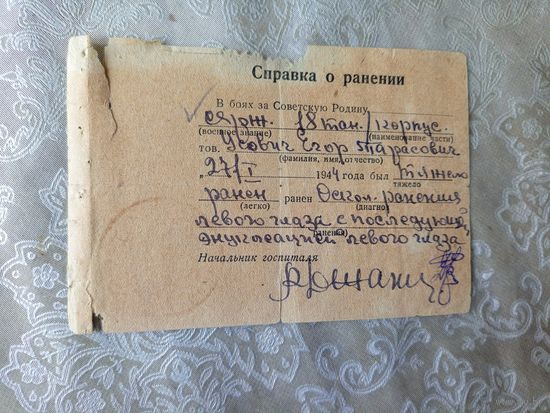 Справка о ранении
В боях за Советскую Родину
серж. 18 тан. корпус.
(военное звание) (наименование части)
тов. Усович Егор Тарасович
(фамилия, имя, отчество)
„ 27/I 1944 года был тяжело
тяжело
ранен ранен Оскол. ранение
(легко) (диагноз)
левого глаза с последующей
ранения)
энуклеацией левого глаза
Начальник госпиталя